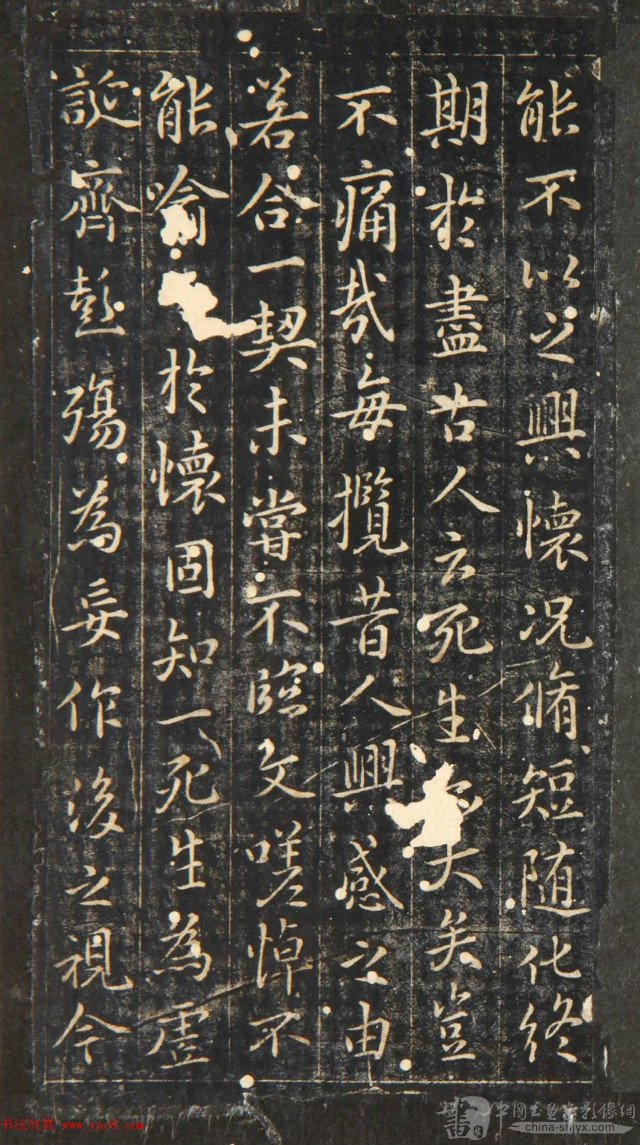 能不以之興懷況脩短随化終
期於盡古人云死生大矣豈
不痛哉每攬昔人興感之由
若合一契未嘗不臨文嗟悼不
能喻於懷固知一死生為虛
誕齊彭殤為妄作後之視今
書法欣賞 www.yac8.com
中国书画家影像網
china-shjyx.com